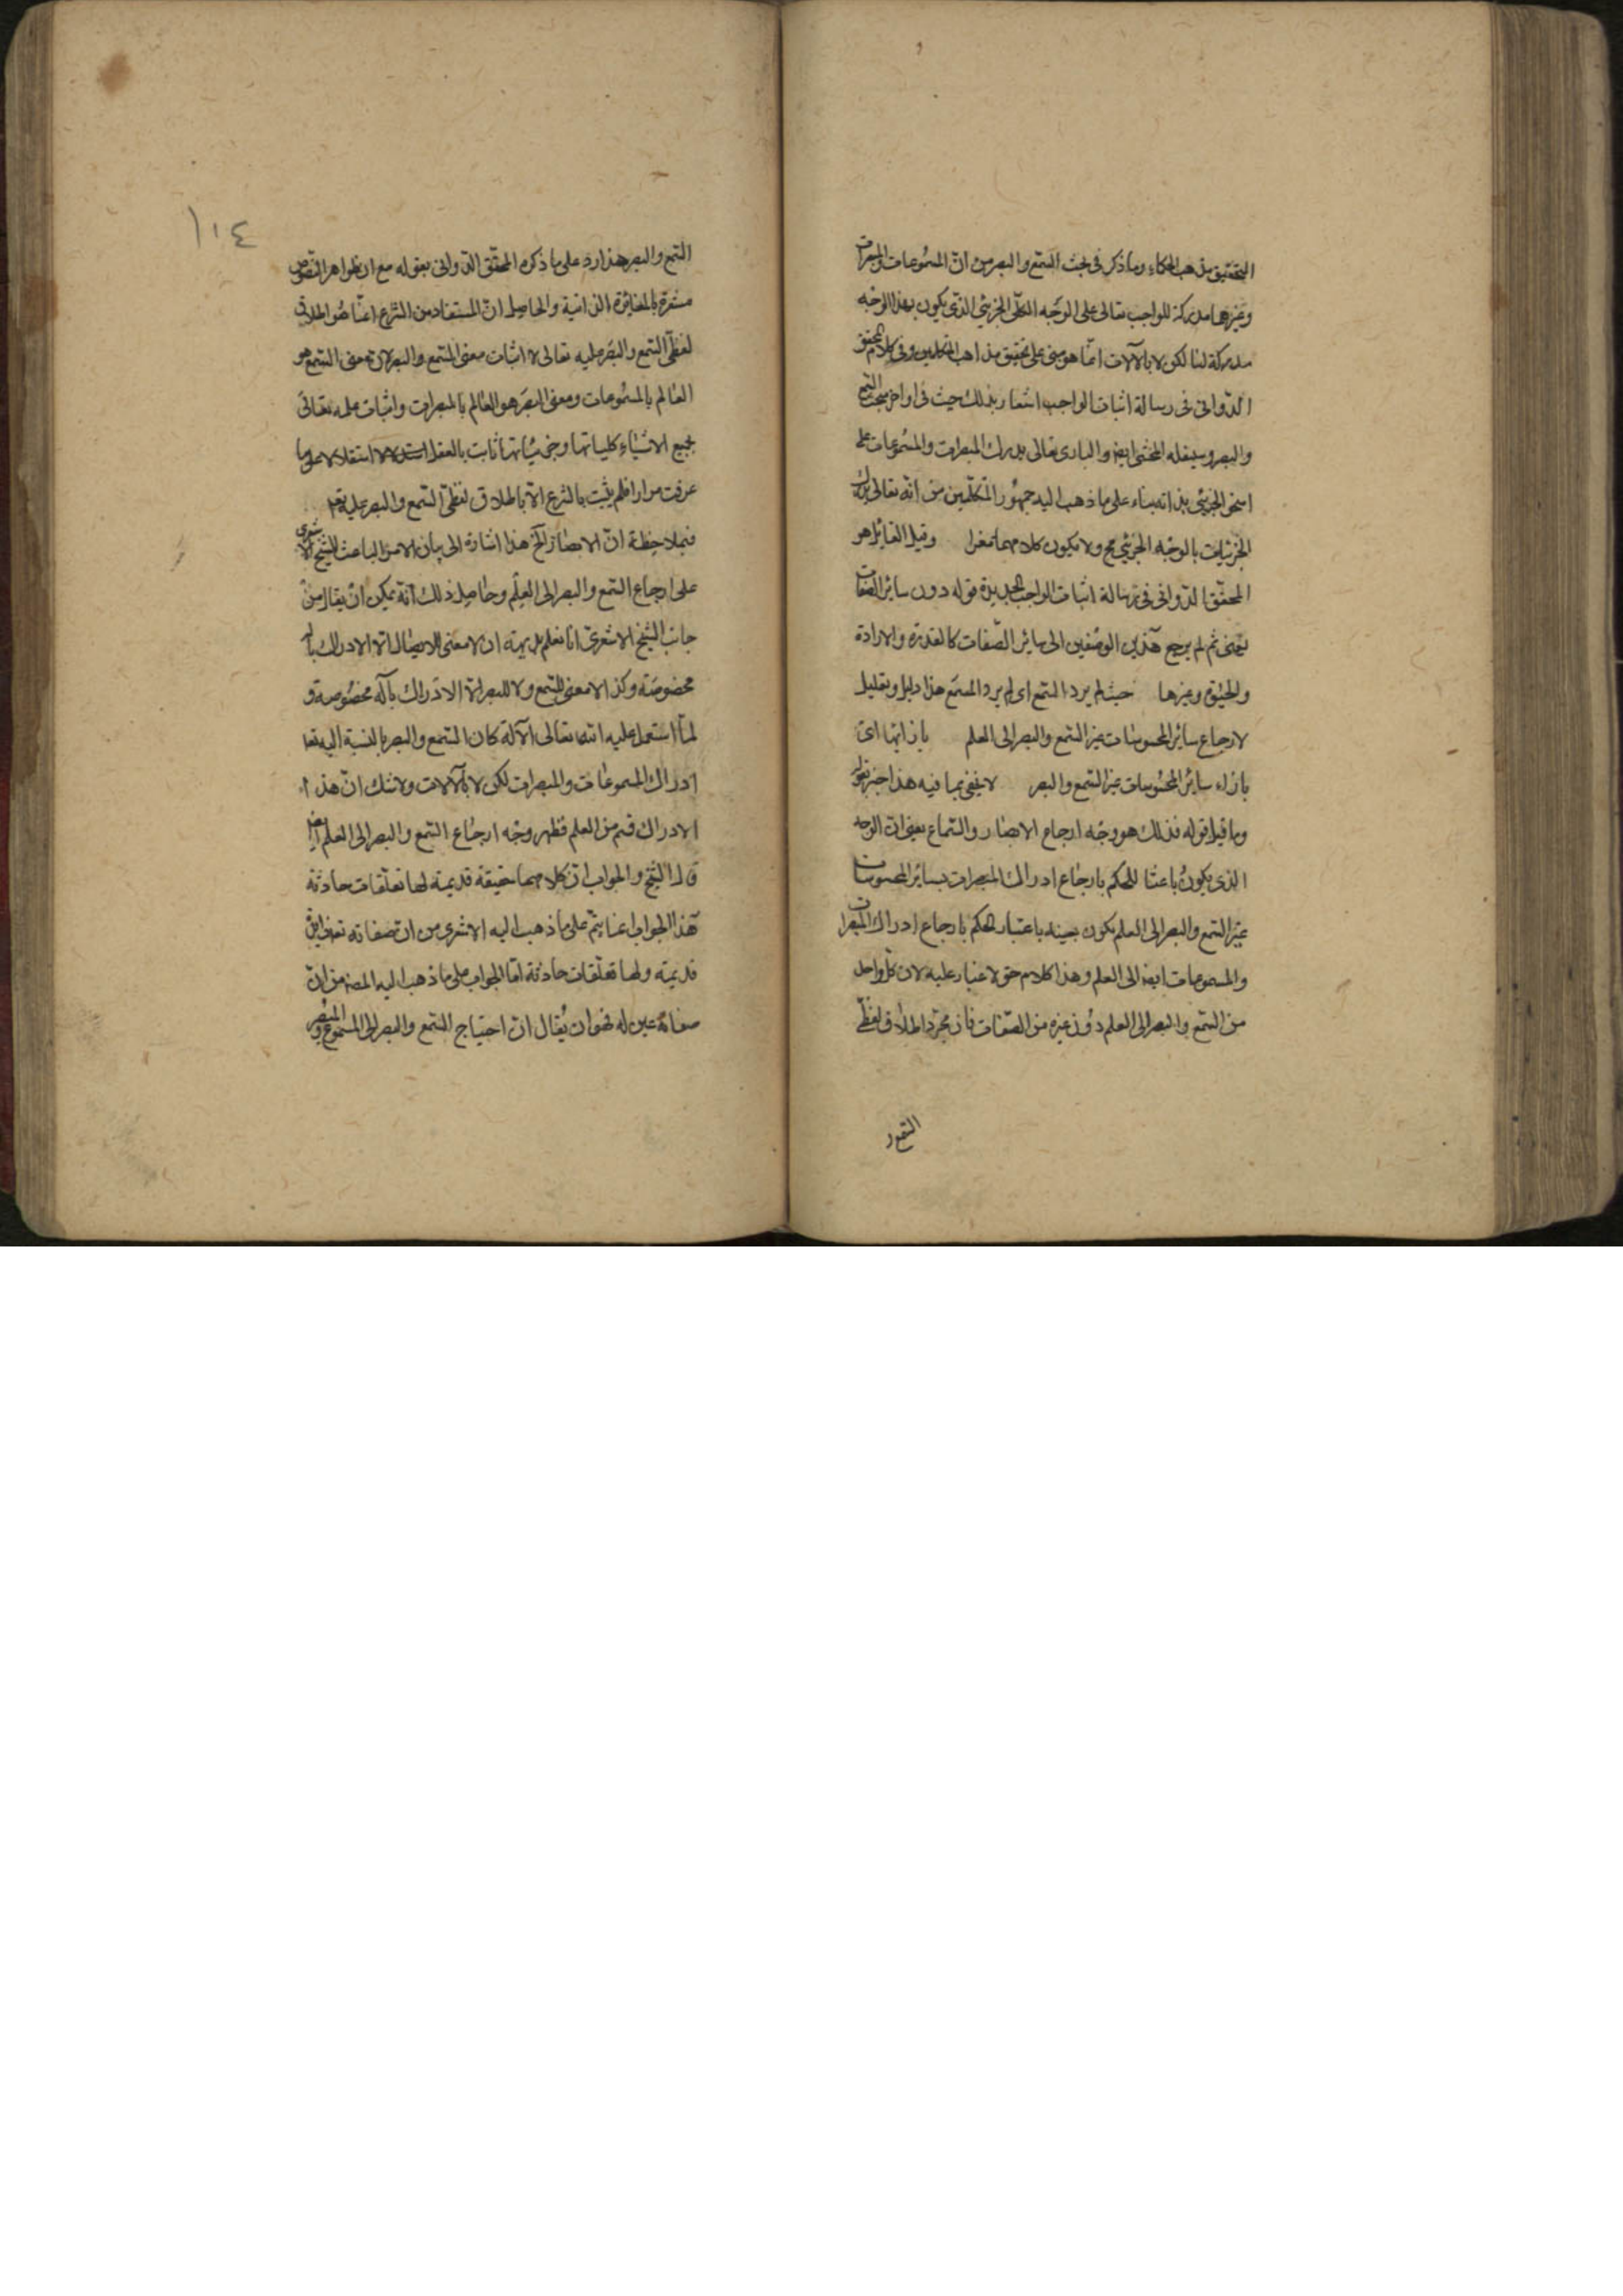 التحقيق مذهب الحكماء وما ذكر فى بحث السمع والبصر من انّ المسموعات والمبصرات
وغيرهما مدركة للواجب تعالى على الوجه الكلّى الجزئىّ الذى يكون بهذا الوجه
مدركة لنا لكن لا بالآلات انّما هو مبنى على تحقيق مذاهب المتكلمين وفى كلام المحقق
الدّوانى فى رسالة اثبات الواجب اشعار بذلك حيث فى اواخر مبحث السمع
والبصر وسينقله المحشى ايضا والبارى تعالى يدرك المبصرات والمسموعات على
النحو الجزئى بذاته بناء على ما ذهب اليه جمهور المتكلّمين من انّه تعالى يدرك
الجزئيات بالوجه الجزئى مح ولا يكون كلامهما وقيل القايل هو
المحقّق الدّوانى فى رسالة اثبات الواجب الجديدة قوله دون سائر الصّفات
يعنى ثم لم يرجع هذين الوصفين الى سائر الصّفات كالقدرة والارادة
والحيٰوة وغيرها حيث لم يرد السّمع اى لم يرد السمع هذا دليل وتعليل
لارجاع سائر المحسوسات غير السّمع والبصر الى العلم بازائها اى
بازاء سائر المحسوسات غير السّمع والبصر لا يخفى بما فيه هذا خبر لقوله
وما قيل قوله فذلك هو وجه ارجاع الابصار والسّماع يعنى ان الوجه
الذى يكون باعثا للحكم بارجاع ادراك المبصرات بسائر المحسوسات
غير السّمع والبصر الى العلم يكون بعينه باعتبار الحكم بارجاع ادراك المبصرات
والمسموعات ايضا الى العلم وهذا كلام حق لا غبار عليه لان كلّ واحد
من السّمع والبصر الى العلم دون غيره من الصّفات فان مجرّد اطلاق لفظى
السّمع والبصر هذا رد على ما ذكره المحقّق الدّوانى بقوله مع ان ظواهر النّصوص
مشعرة بالمغائرة الذاتية والحاصل انّ المستفاد من الشّرع انّما هو اطلاق
لفظى السّمع والبصر عليه تعالى لا اثبات معنى السّمع والبصر لانّ معنى السّمع هو
العالم بالمسموعات ومعنى البصر هو العالم بالمبصرات واثبات علمه تعالى
بجميع الاشياء كلياتها وجزئياتها ثابت بالعقل استقلالا على ما
عرفت مرارا فلم يثبت بالشرع الّا باطلاق لفظى السّمع والبصر عليه تعم
فبملاحظة انّ الابصار الخ هذا اشارة الى بيان الامر الباعث للشّيخ الاشعرى
على ارجاع السّمع والبصر الى العلم وحاصل ذلك انّه يمكن ان يقال من
جانب الشّيخ الاشعرى انا نعلم بديهة ان لا معنى للابصار الّا الادراك بآلة
مخصوصة وكذا لا معنى للسّمع ولا للبصر الّا الادراك بآلة مخصوصة و
لمّا استحيل عليه اللّه تعالى الآلة كان السّمع والبصر بالنسبة اليه تعا
ادراك المسموعات والمبصرات لكن لا بالآلات ولا شك انّ هذا
الادراك قسم من العلم فظهر وجه ارجاع السّمع والبصر الى العلم ايضا
قال الشّيخ والجواب انّ كلامهما حقيقة قديمة لها تعلّقات حادثة
هذا الجواب انما يتمّ على ما ذهب اليه الاشعرى من انّ صفاته تعالى
قديمة ولها تعلّقات حادثة امّا الجواب على ما ذهب اليه المصنف من انّ
صفاته عين له فهو ان يقال انّ احتياج السّمع والبصر الى المسموع والمبصر
التمع و
١١٤